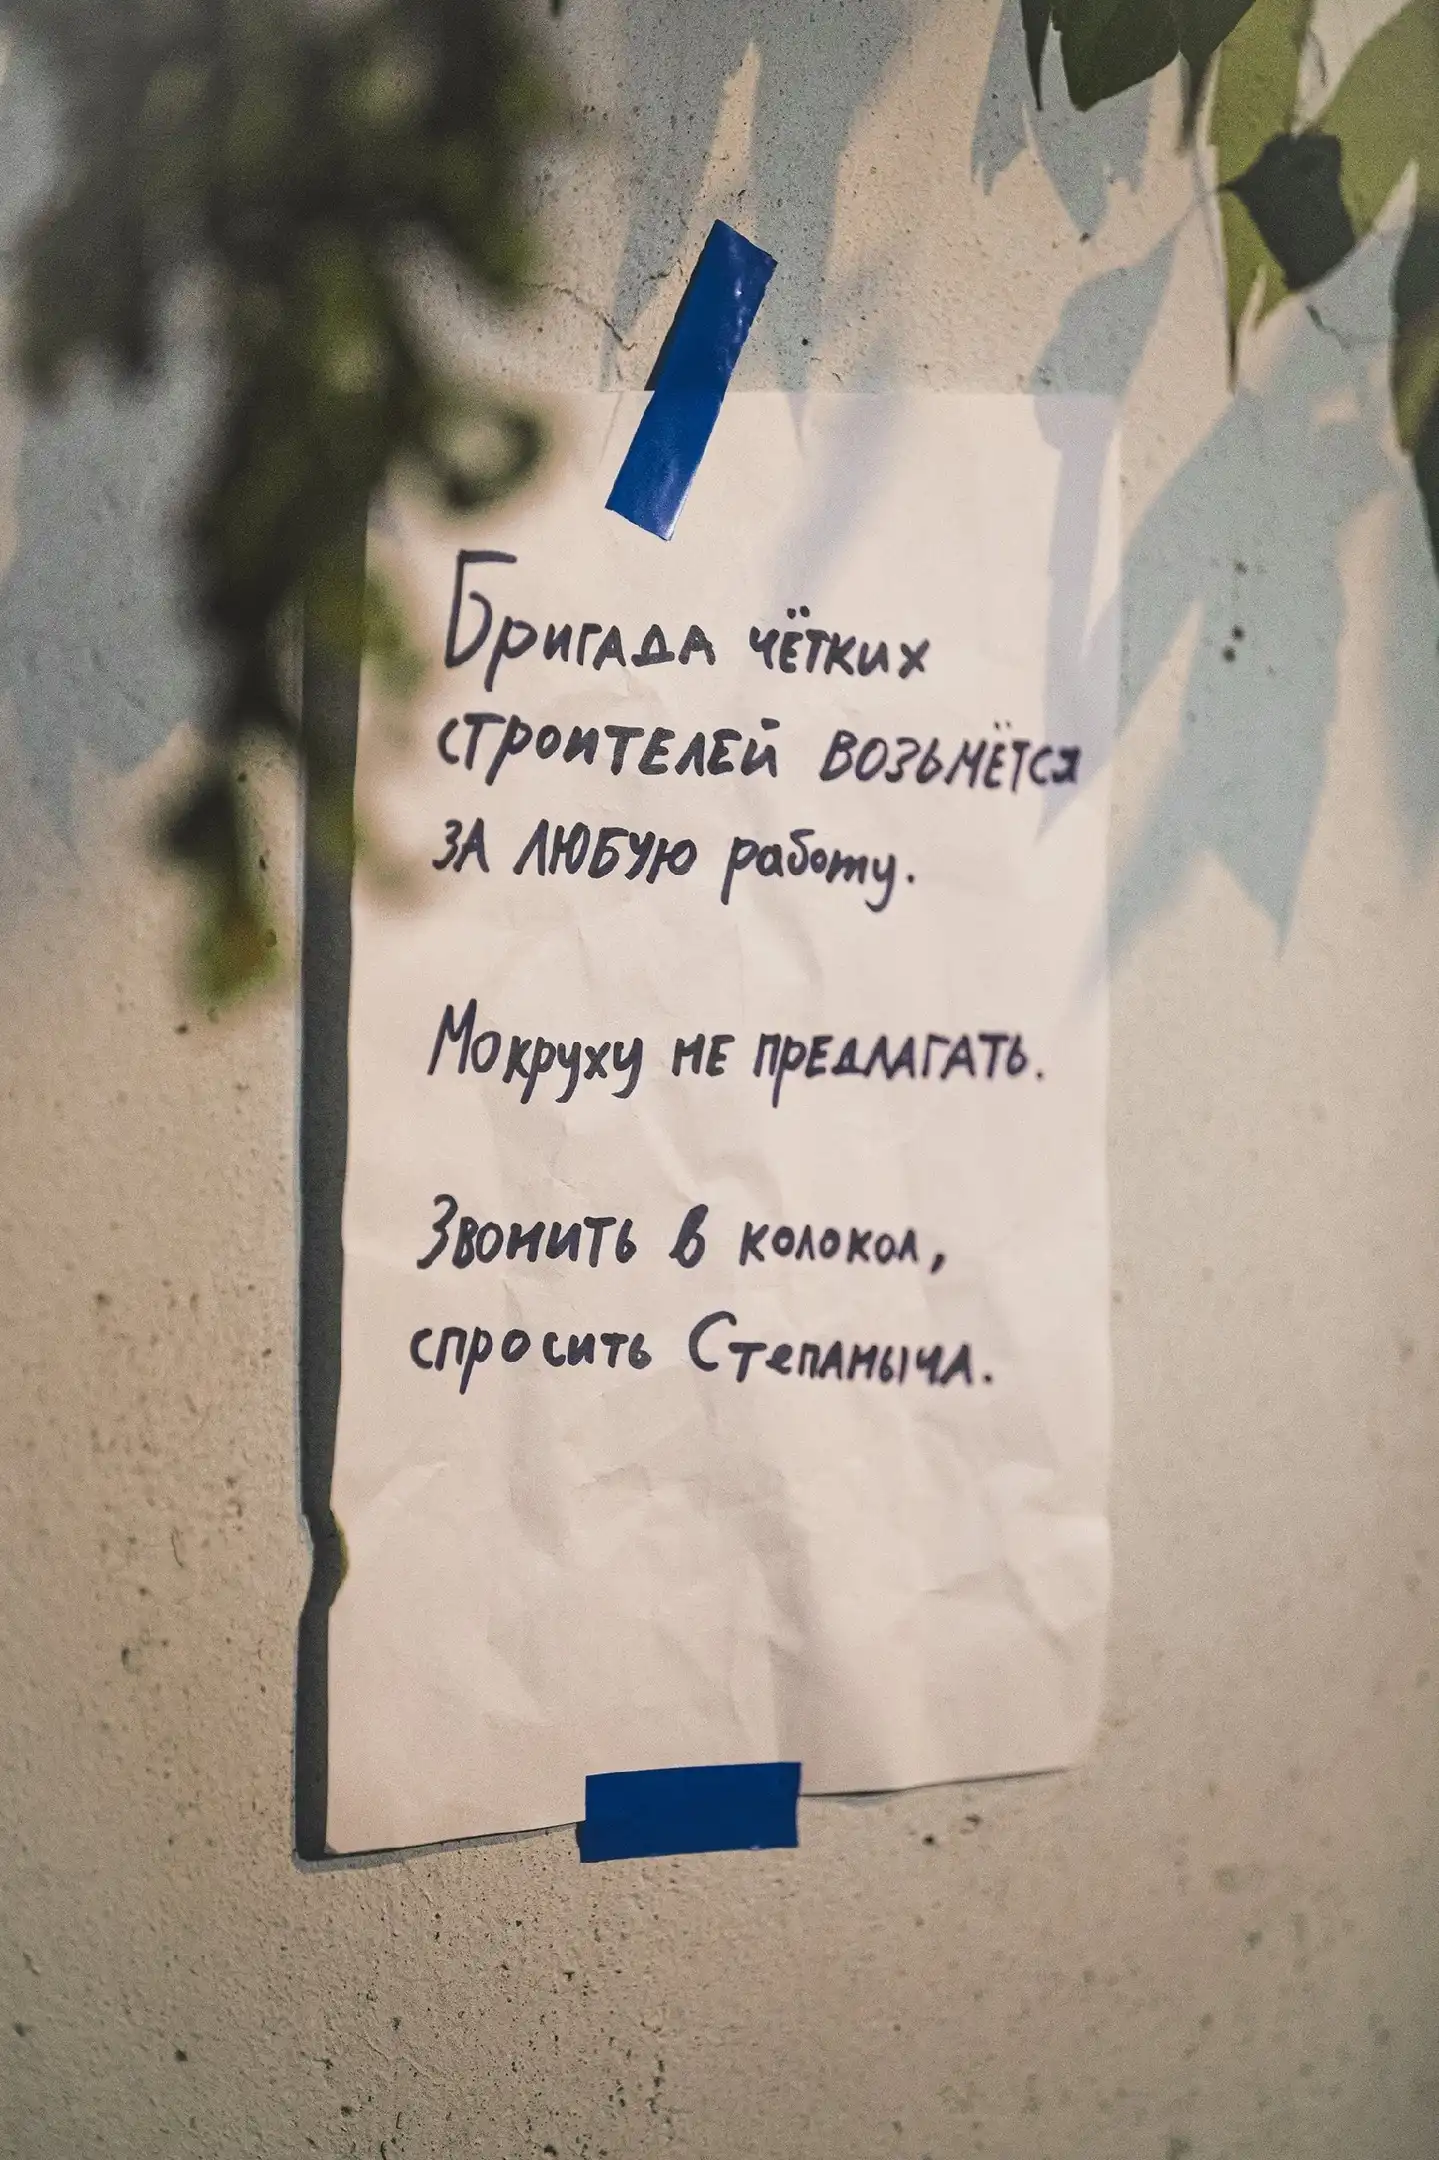 Бригада чётких
строителей возьмётся
за любую работу.
Мокруху не предлагать.
Звонить в колокол,
спросить Степаныча.